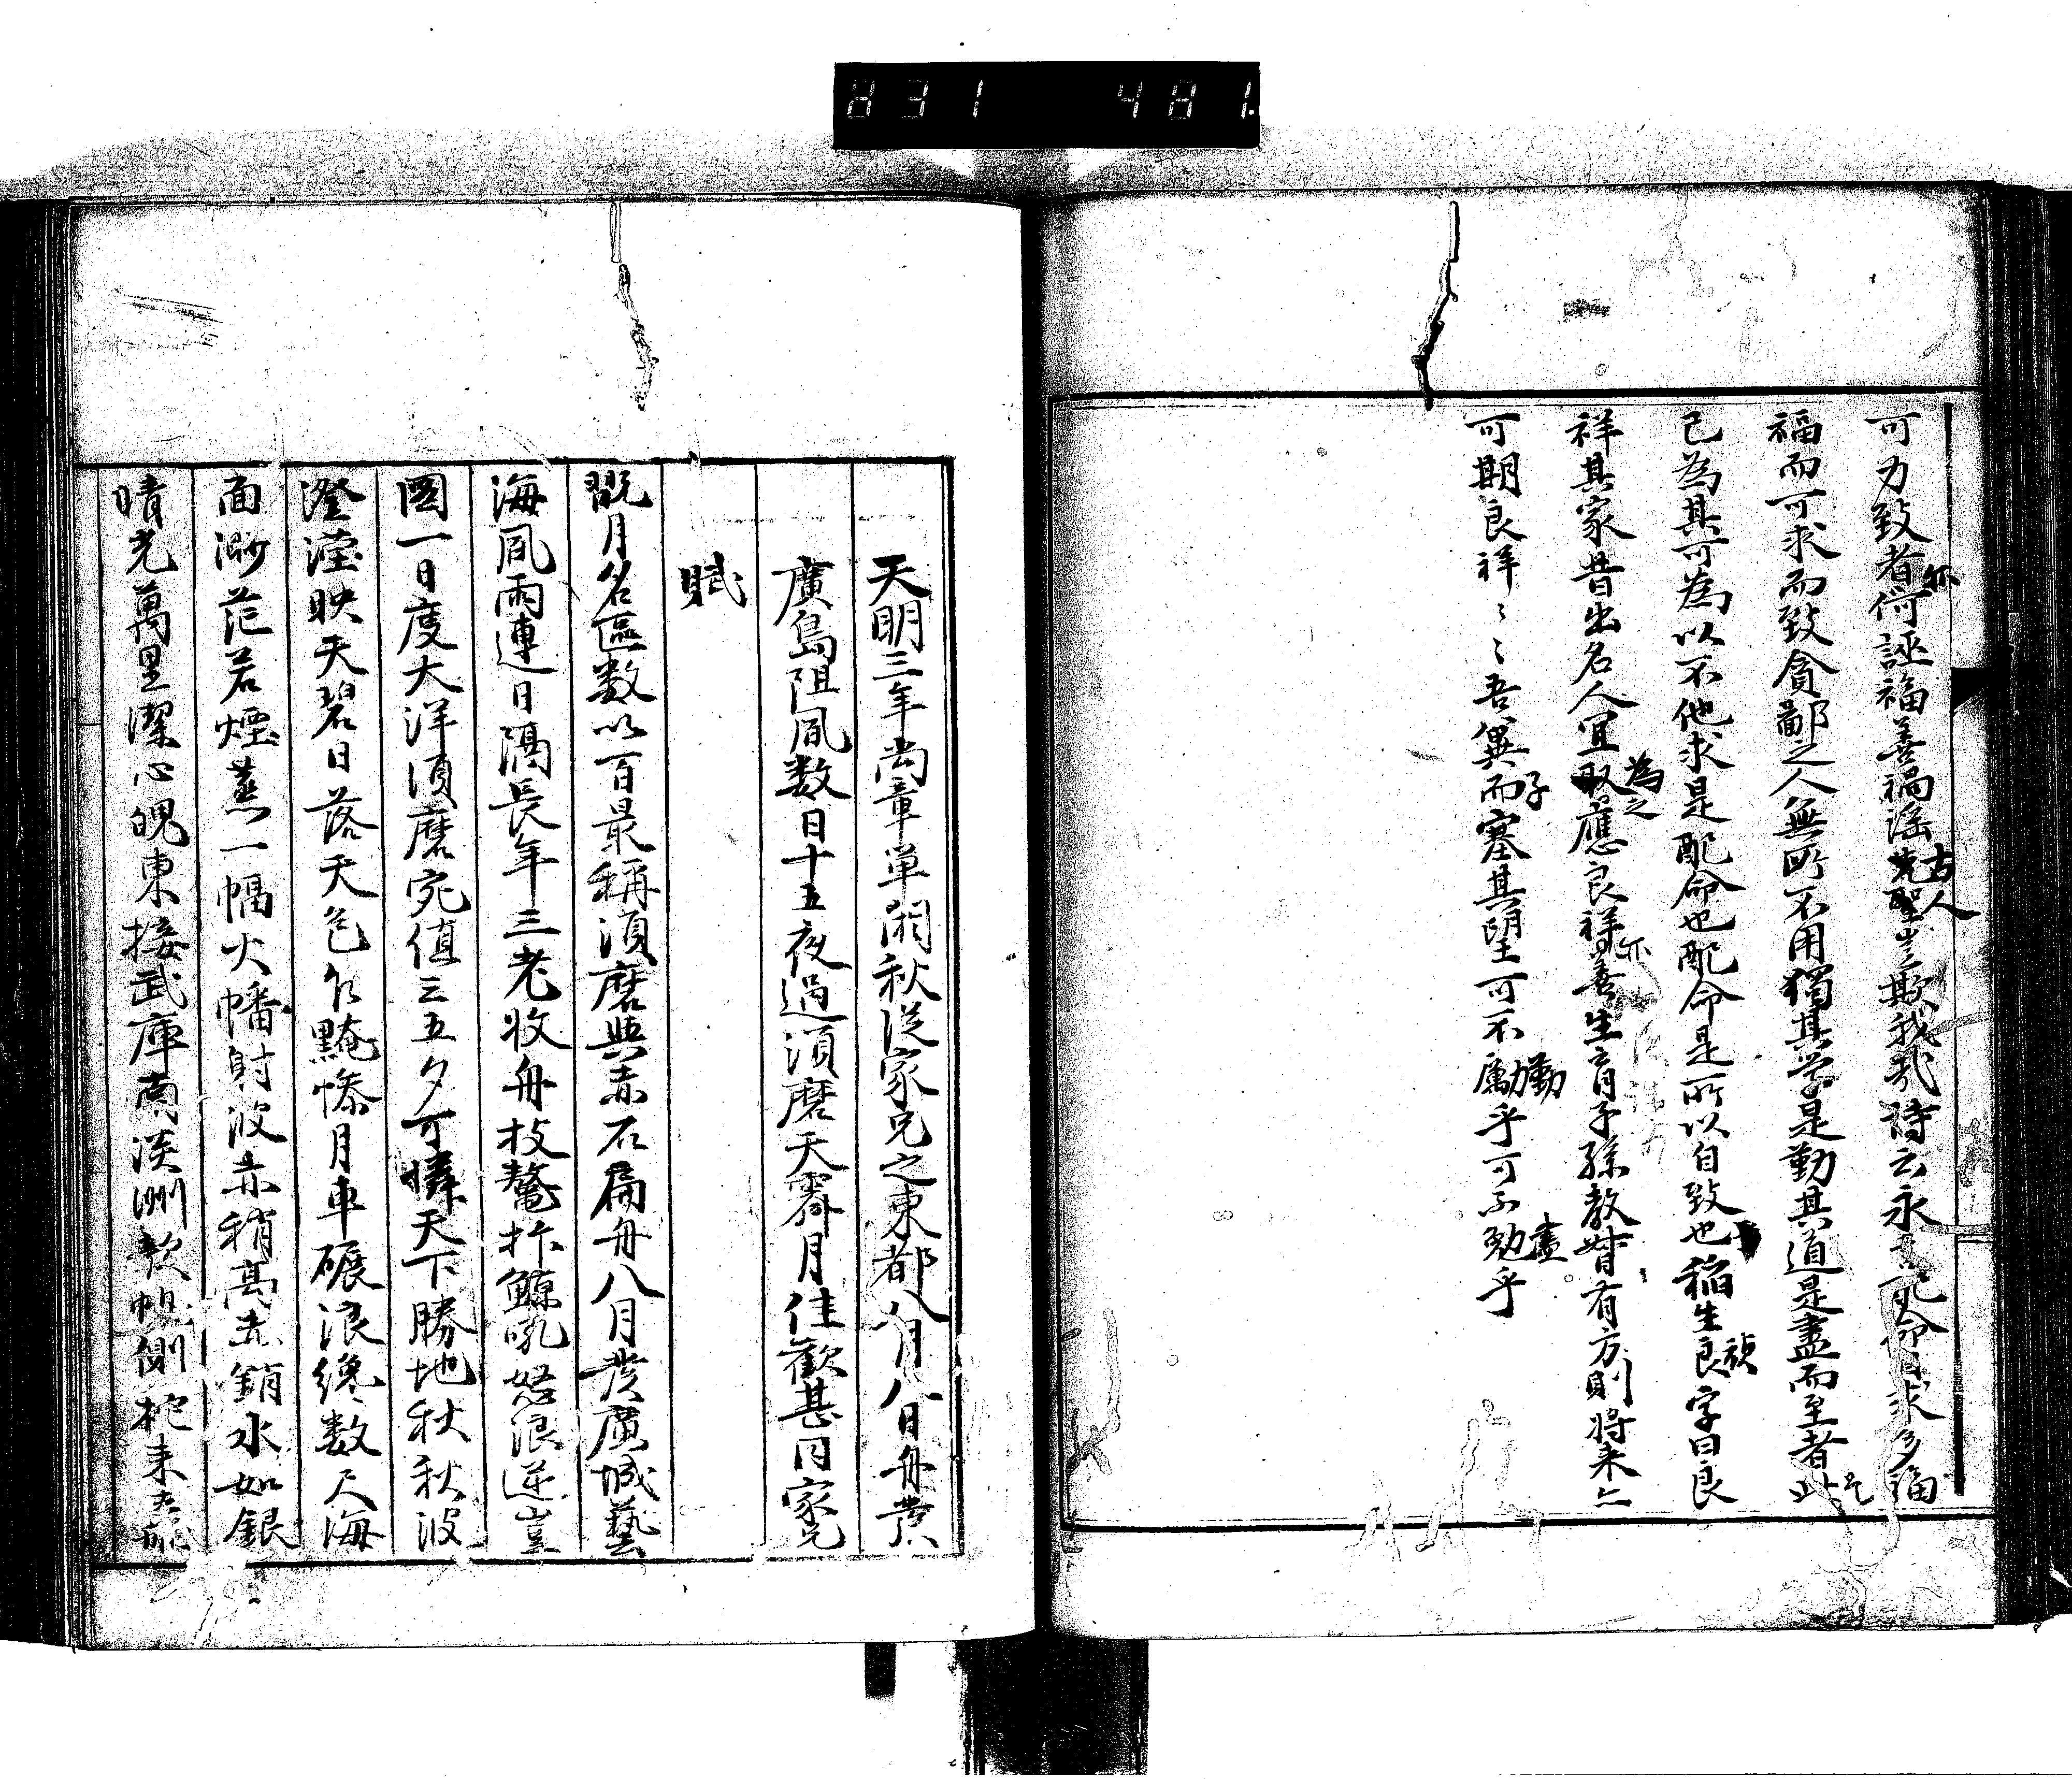 831 481.
可力致者何誣福善禍淫先聖豈欺我哉詩云永言配命自求多福
福而可求而致貪鄙之人無所不用獨其学是勤其道是盡而至者此
已為其可為以不他求是配命也配命是所以自致也稲生良字曰良
祥其家昔出名人宜取應良祥善生育子孫教督有方則将来之
可期良祥〻〻吾冀而塞其望可不勵乎可不勉乎
古人
為之
子
勤
盡
天明三年尚章單閼秋従家兄之東都八月八日舟發
廣島阻風数日十五夜過須磨天霽月佳歡甚同家兄
賦
翫月名區数以百最稱須磨與赤石扁舟八月發廣城藝
海風雨連日隔長年三老收舟枝鼇抃鯨吼怒浪逆豈
圖一日度大洋須磨宛值三五夕可憐天下勝地秋秋波
澄瀅映天碧日落天色乍黤慘月車碾浪纔数尺海
面渺茫若煙蒸一幅火幡射波赤稍高赤銷水如銀
晴光萬里潔心魄東接武庫南淡洲欹帆側柁来